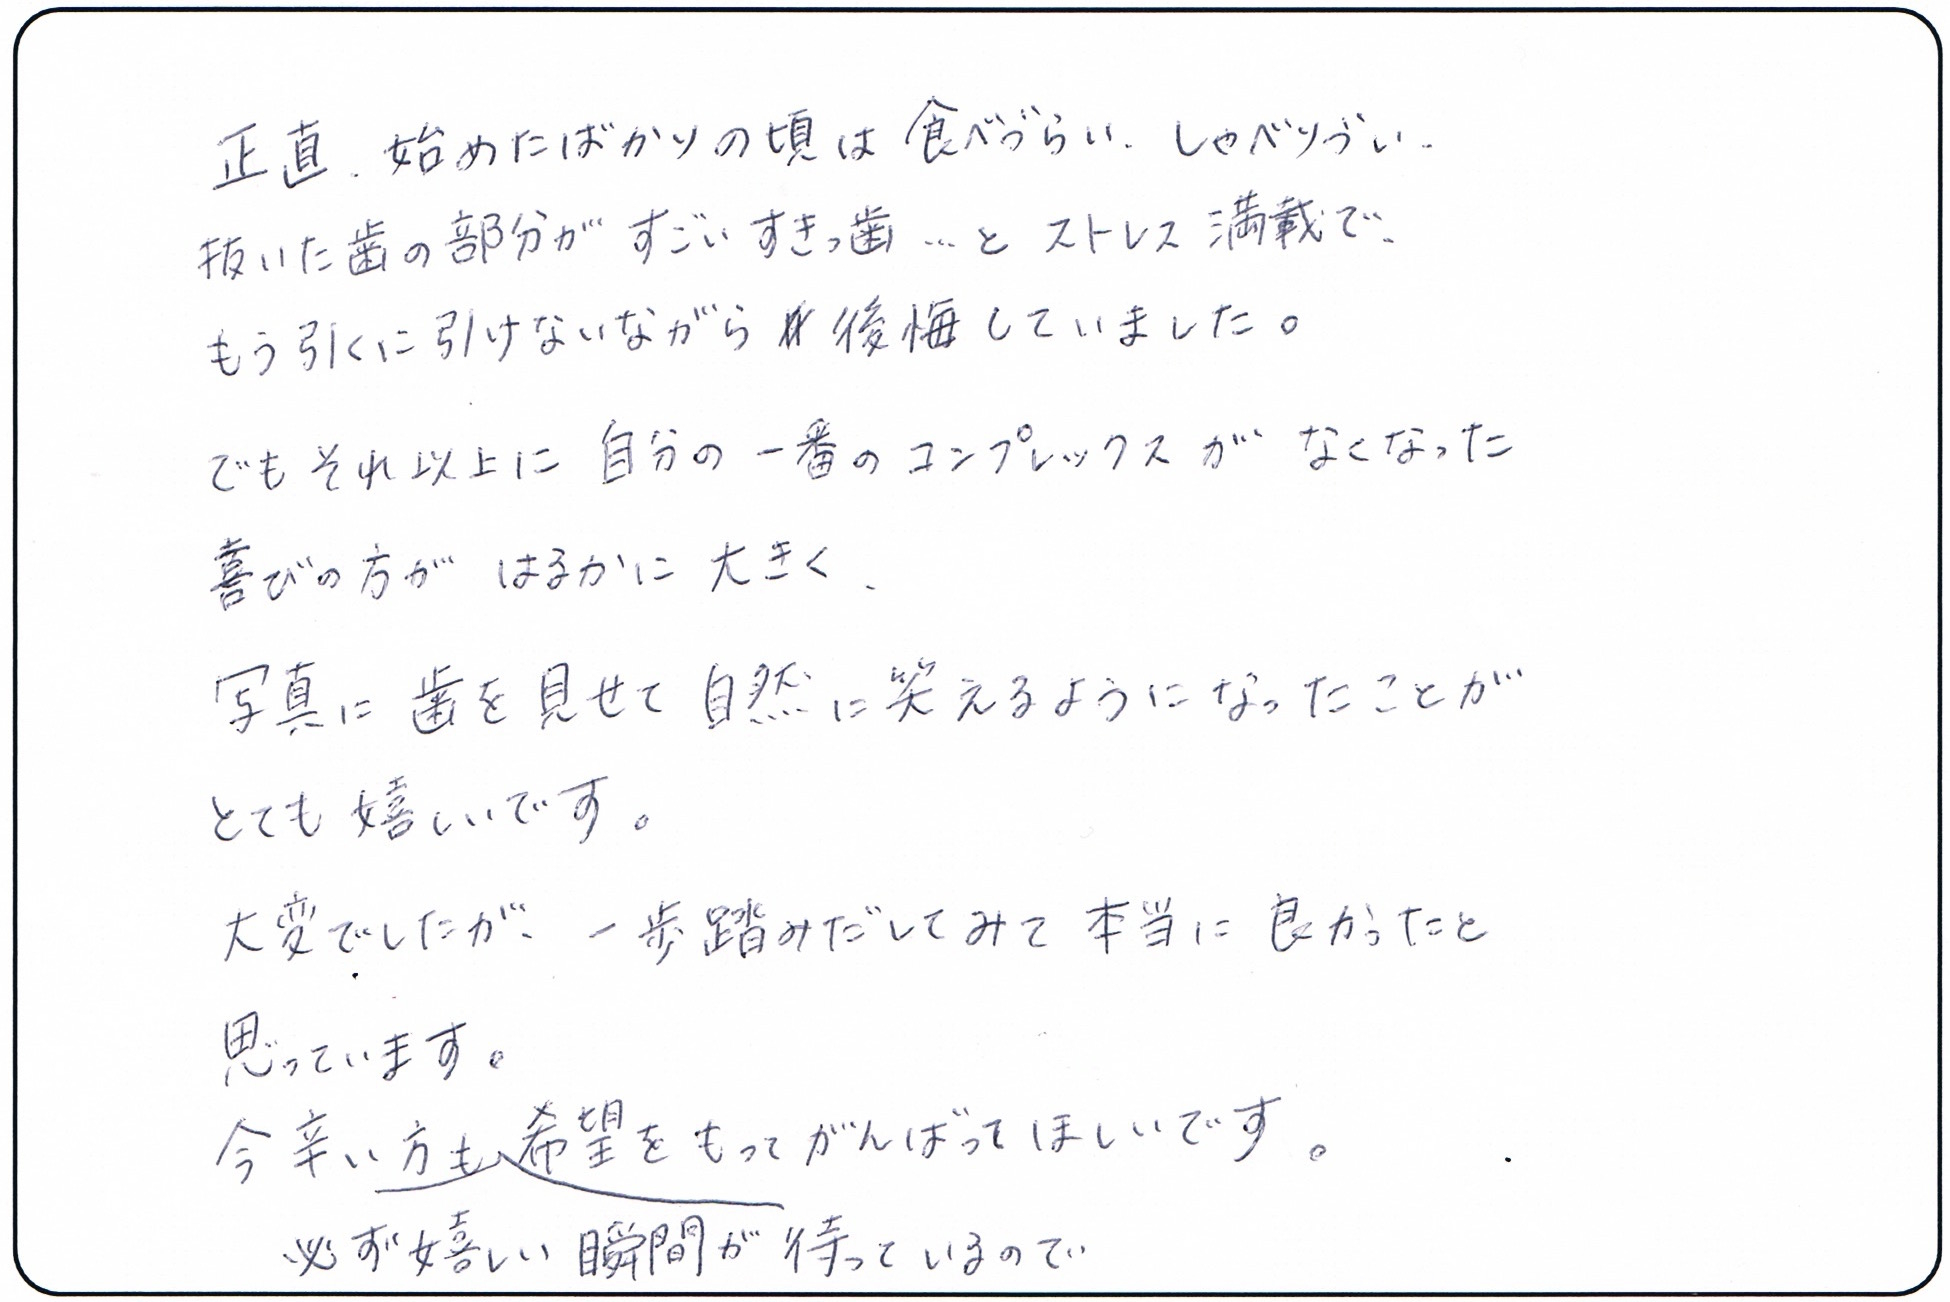 正直、始めたばかりの頃は 食べづらい、しゃべりづい、
抜いた歯の部分が すごいすきっ歯…と ストレス満載で、
もう引くに引けないながら後悔していました。
でもそれ以上に 自分の一番のコンプレックスが なくなった
喜びの方が はるかに 大きく、
写真に 歯を見せて 自然に笑えるようになったことが
とても嬉しいです。
大変でしたが、一歩踏みだしてみて 本当に 良かったと
思っています。
今辛い方も 希望をもってがんばってほしいです。
必ず嬉しい瞬間が待っているので